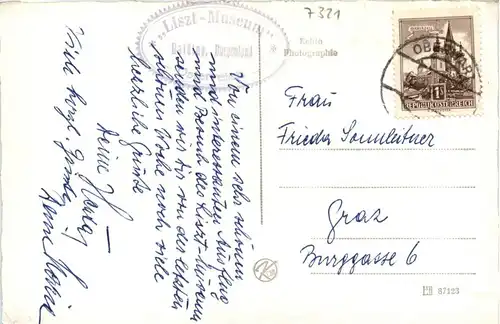 7321
„Liszt-Museum"
Raiding, Burgenland
Kuhin
Photographie
1S
REPUBLIK ÖSTERREICH
OBER
Von einem sehr schönen
und interessanten Ausflug
und Besuch des Liszt-Museums
senden wir Dir von der letzten
schönen Woche noch viele
herzliche Grüsse
Deine
Viele herzl.
Frau
Frieda Sonnleitner
Graz
Burggasse 6
87123